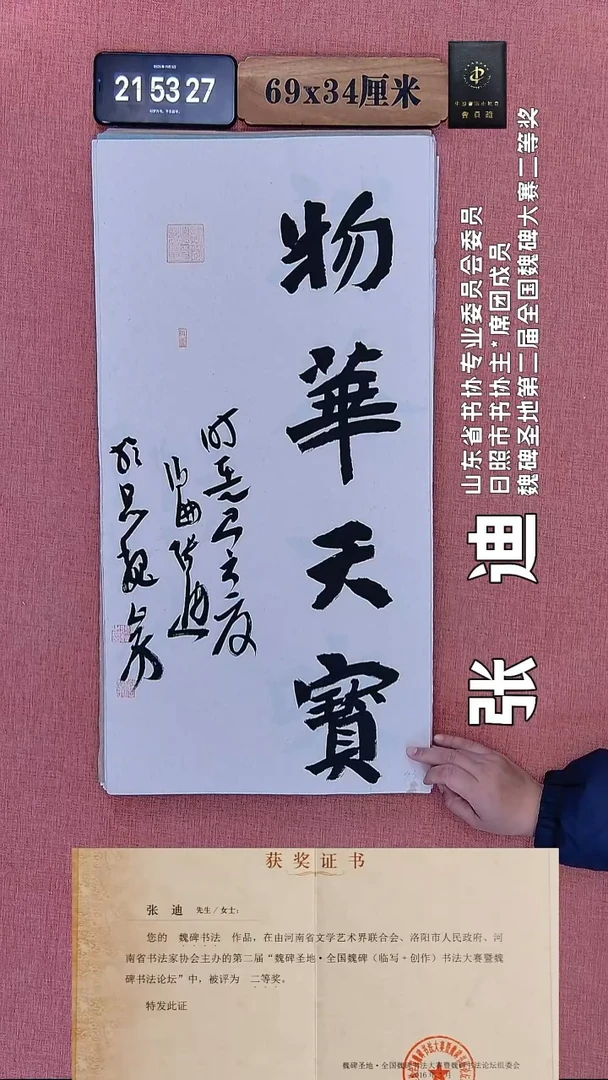 21 53 27
69x34厘米
物華天寶
时
张迪
山东省书协专业委员会委员
日照市书协主*席团成员
魏碑圣地第二届全国魏碑大赛二等奖
张 迪
获奖证书
张 迪 先生/女士:
您的 魏碑书法 作品，在由河南省文学艺术界联合会、洛阳市人民政府、河
南省书法家协会主办的第二届“魏碑圣地·全国魏碑（临写+创作）书法大赛暨魏
碑书法论坛”中，被评为 二等奖。
特发此证
魏碑圣地·全国魏碑书法大赛暨魏碑书法论坛组委会